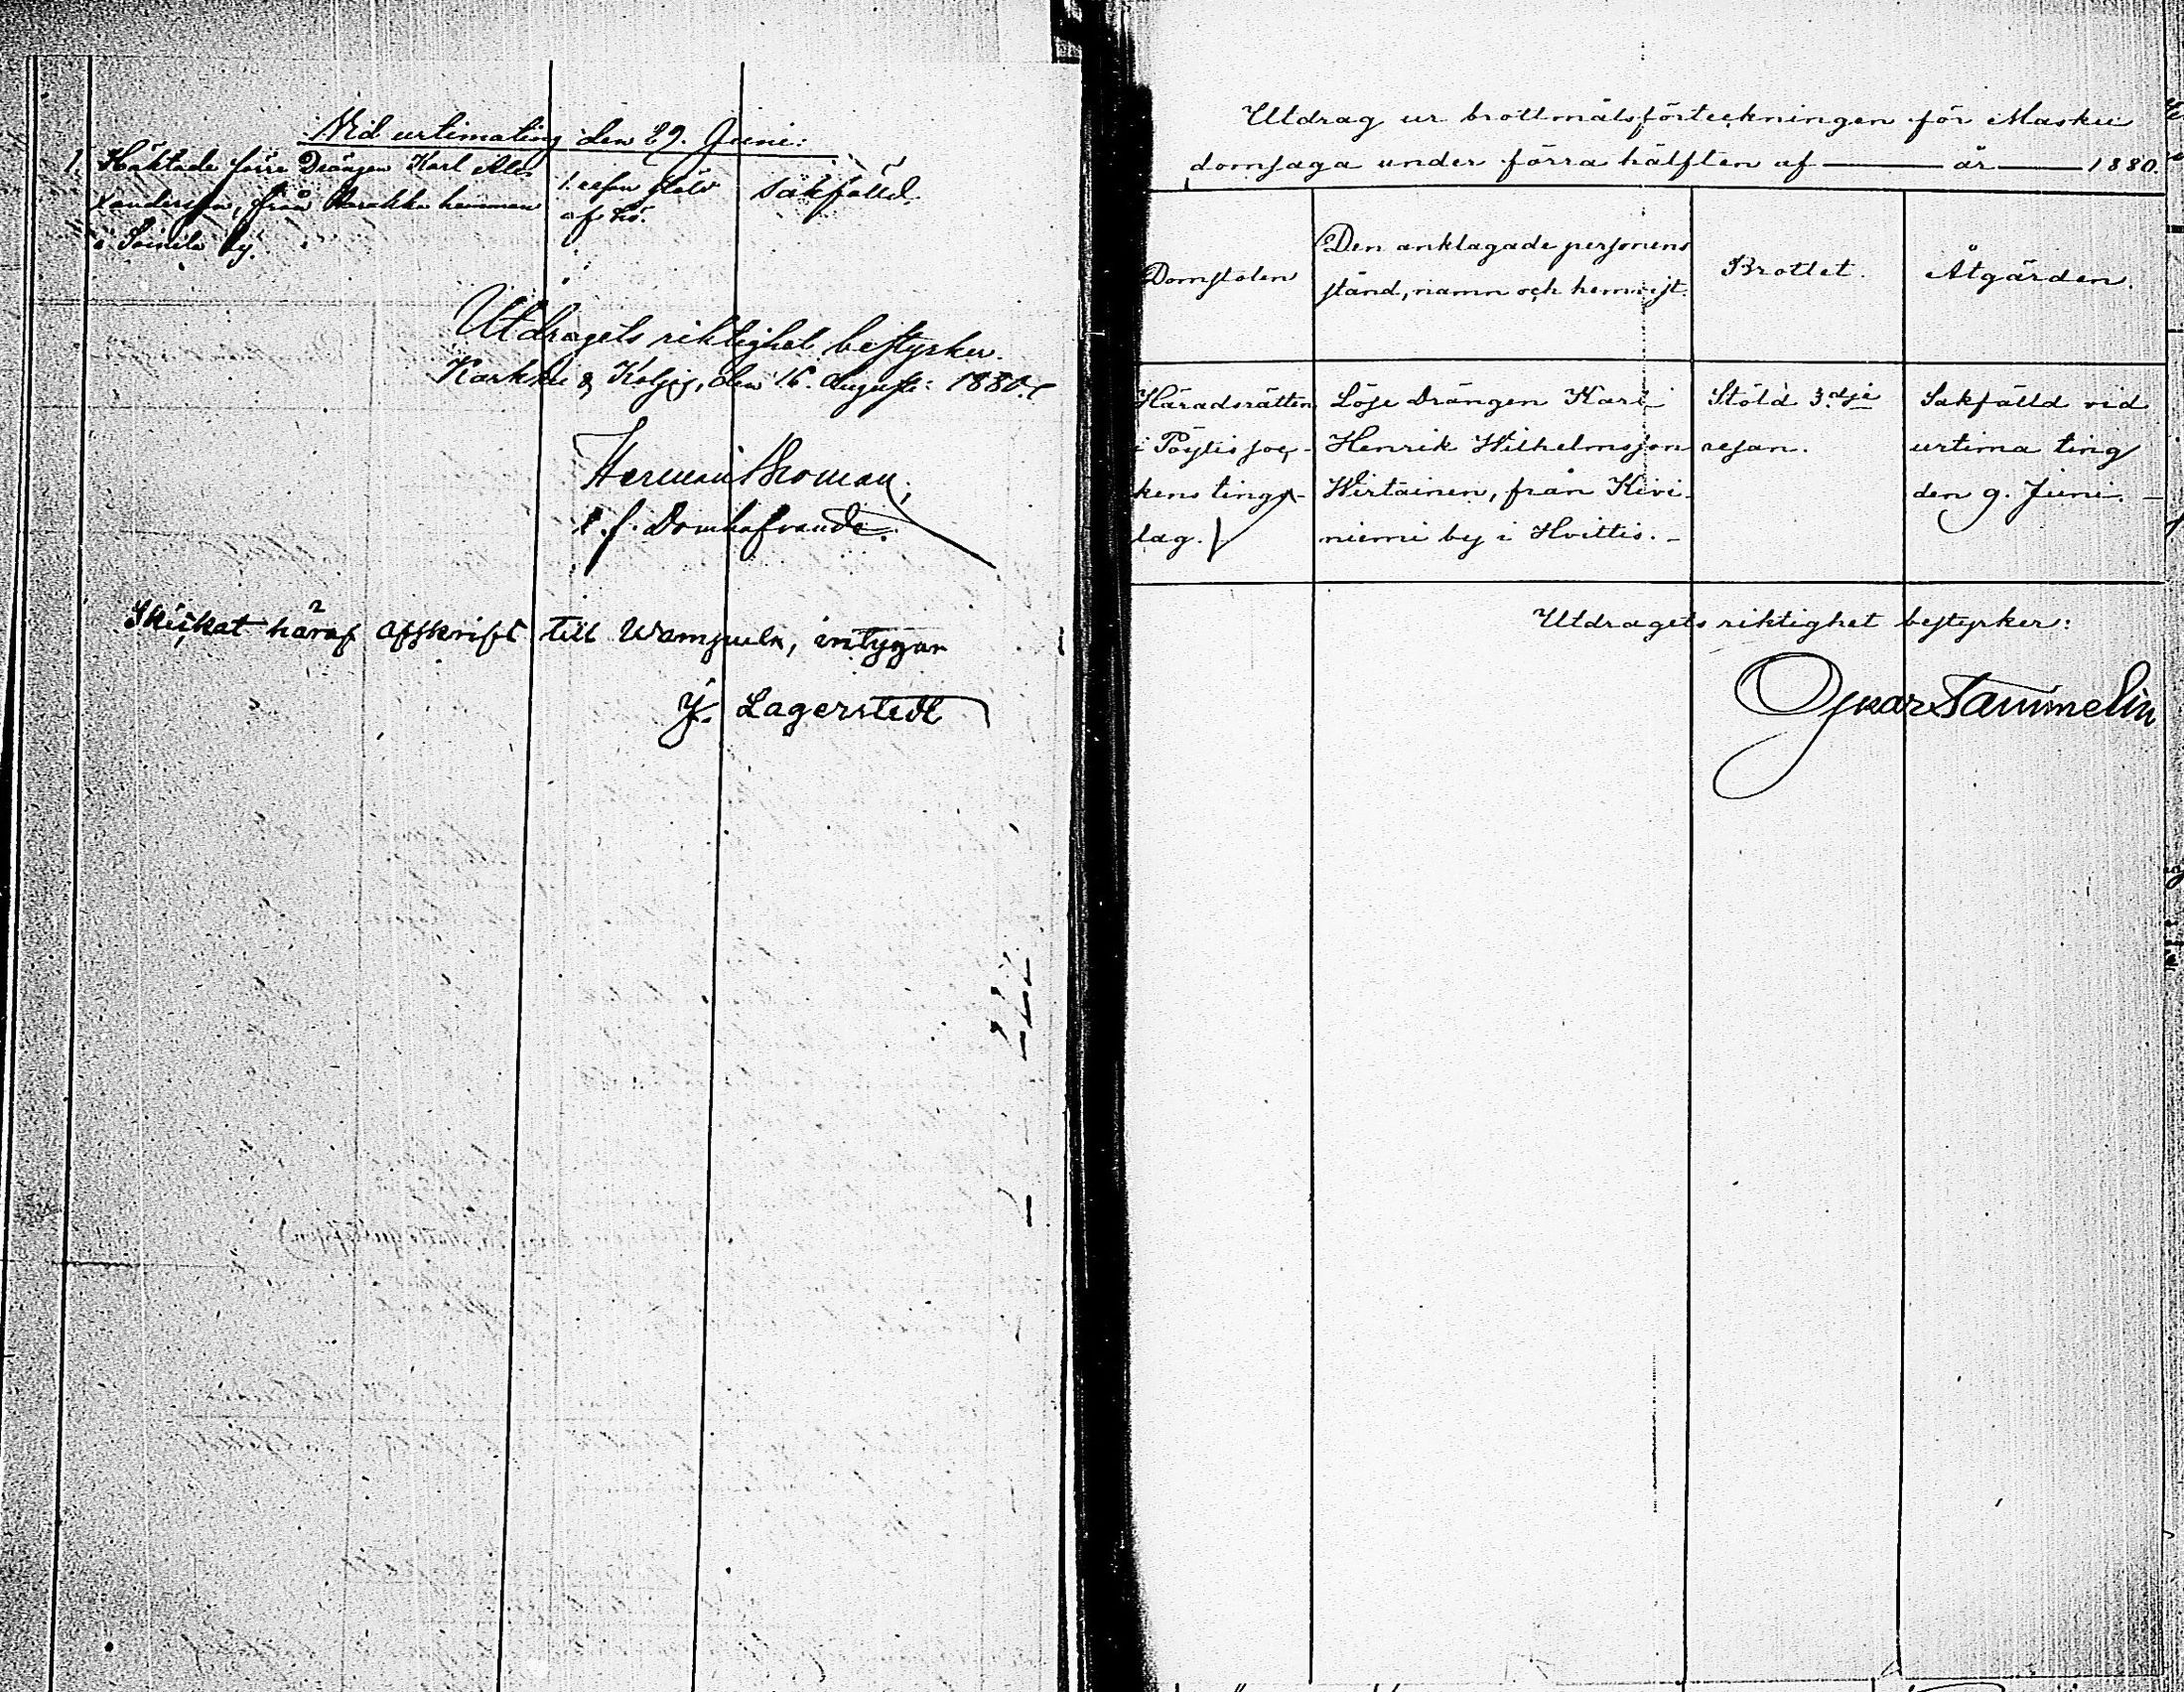 Vid urtimating den 29. Juni:
1. Häktade förre Drängen Karl Ale- 1. resan stöld sakfälld.
xandersson, från hemman af hö.
i Soinila by.
Utdragets riktighet bestyrker.
Karkku & den 16. Augusti 1880.
Herman
t. f. Domhafvande.
Skickat häraf afskrift till Wampula, intygar
J. Lagerstedt
Utdrag ur brottmålsförteckningen för Masku
domsaga under förra hälften af — år — 1880.
Domstolen Den anklagade personens Brottet. Åtgärden.
stånd, namn och hemvist.
Häradsrätten Löse Drängen Karl Stöld 3dje Sakfälld vid
i Pöytis soc- Henrik Wilhelmsson resan. urtima ting
kens tings- Wirtainen, från Kivi- den 9. Juni. –
lag. niemi by i Hvittis. –
Utdragets riktighet bestyrker:
Oskar Tammelin